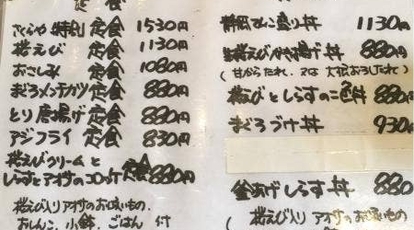 定食
さくらや特製 定食 1530円
桜えび 定食 1130円
おさしみ 定食 1080円
まぐろメンチカツ 定食 880円
とり唐揚げ 定食 880円
アジフライ 定食 830円
桜えびクリームと
しらすとアオサのコロッケ 定食 880円
桜えび入りアオサのお吸いもの、
おしんこ、小鉢、ごはん 付
丼
静岡てんこ盛り丼 1130円
桜えびかき揚げ丼 880円
(甘からだれ、又は 大根おろしだれ)
桜えびとしらすの二色丼 880円
まぐろづけ丼 930円
釜あげしらす丼 880
(桜えび入り アオサのお吸いもの